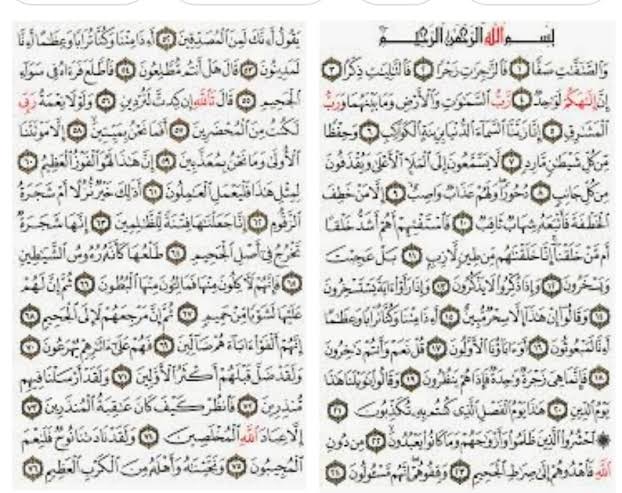 بِسْمِ اللَّهِ الرَّحْمَٰنِ الرَّحِيمِ
وَالصَّٰٓفَّٰتِ صَفًّا ١ فَالزَّٰجِرَٰتِ زَجْرًا ٢ فَالتَّٰلِيَٰتِ ذِكْرًا ٣
إِنَّ إِلَٰهَكُمْ لَوَٰحِدٌ ٤ رَبُّ السَّمَٰوَٰتِ وَالْأَرْضِ وَمَا بَيْنَهُمَا وَرَبُّ
الْمَشَٰرِقِ ٥ إِنَّا زَيَّنَّا السَّمَآءَ الدُّنْيَا بِزِينَةٍ الْكَوَاكِبِ ٦ وَحِفْظًا
مِّن كُلِّ شَيْطَٰنٍ مَّارِدٍ ٧ لَّا يَسَّمَّعُونَ إِلَى الْمَلَإِ الْأَعْلَىٰ وَيُقْذَفُونَ
مِن كُلِّ جَانِبٍ ٨ دُحُورًا وَلَهُمْ عَذَابٌ وَاصِبٌ ٩ إِلَّا مَنْ خَطِفَ
الْخَطْفَةَ فَأَتْبَعَهُ شِهَابٌ ثَاقِبٌ ١٠ فَاسْتَفْتِهِمْ أَهُمْ أَشَدُّ خَلْقًا
أَم مَّنْ خَلَقْنَآ إِنَّا خَلَقْنَٰهُم مِّن طِينٍ لَّازِبٍ ١١ بَلْ عَجِبْتَ
وَيَسْخَرُونَ ١٢ وَإِذَا ذُكِّرُوا لَا يَذْكُرُونَ ١٣ وَإِذَا رَأَوْا ءَايَةً يَسْتَسْخِرُونَ
١٤ وَقَالُوٓا إِنْ هَٰذَآ إِلَّا سِحْرٌ مُّبِينٌ ١٥ أَءِذَا مِتْنَا وَكُنَّا تُرَابًا وَعِظَٰمًا
أَءِنَّا لَمَبْعُوثُونَ ١٦ أَوَءَابَآؤُنَا الْأَوَّلُونَ ١٧ قُلْ نَعَمْ وَأَنتُمْ دَٰخِرُونَ
١٨ فَإِنَّمَا هِيَ زَجْرَةٌ وَٰحِدَةٌ فَإِذَا هُمْ يَنظُرُونَ ١٩ وَقَالُوا يَٰوَيْلَنَا هَٰذَا
يَوْمُ الدِّينِ ٢٠ هَٰذَا يَوْمُ الْفَصْلِ الَّذِي كُنتُم بِهِ تُكَذِّبُونَ ٢١
۞ احْشُرُوا الَّذِينَ ظَلَمُوا وَأَزْوَٰجَهُمْ وَمَا كَانُوا يَعْبُدُونَ ٢٢ مِن دُونِ
اللَّهِ فَاهْدُوهُمْ إِلَىٰ صِرَٰطِ الْجَحِيمِ ٢٣ وَقِفُوهُمْ إِنَّهُم مَّسْـُٔولُونَ ٢٤
يَقُولُ أَءِنَّكَ لَمِنَ الْمُصَدِّقِينَ ٥٢ أَءِذَا مِتْنَا وَكُنَّا تُرَابًا وَعِظَٰمًا أَءِنَّا
لَمَدِينُونَ ٥٣ قَالَ هَلْ أَنتُم مُّطَّلِعُونَ ٥٤ فَاطَّلَعَ فَرَءَاهُ فِي سَوَآءِ
الْجَحِيمِ ٥٥ قَالَ تَاللَّهِ إِن كِدتَّ لَتُرْدِينِ ٥٦ وَلَوْلَا نِعْمَةُ رَبِّي
لَكُنتُ مِنَ الْمُحْضَرِينَ ٥٧ أَفَمَا نَحْنُ بِمَيِّتِينَ ٥٨ إِلَّا مَوْتَتَنَا
الْأُولَىٰ وَمَا نَحْنُ بِمُعَذَّبِينَ ٥٩ إِنَّ هَٰذَا لَهُوَ الْفَوْزُ الْعَظِيمُ ٦٠
لِمِثْلِ هَٰذَا فَلْيَعْمَلِ الْعَٰمِلُونَ ٦١ أَذَٰلِكَ خَيْرٌ نُّزُلًا أَمْ شَجَرَةُ
الزَّقُّومِ ٦٢ إِنَّا جَعَلْنَٰهَا فِتْنَةً لِّلظَّٰلِمِينَ ٦٣ إِنَّهَا شَجَرَةٌ
تَخْرُجُ فِيٓ أَصْلِ الْجَحِيمِ ٦٤ طَلْعُهَا كَأَنَّهُ رُءُوسُ الشَّيَٰطِينِ
٦٥ فَإِنَّهُمْ لَءَاكِلُونَ مِنْهَا فَمَالِـُٔونَ مِنْهَا الْبُطُونَ ٦٦ ثُمَّ إِنَّ لَهُمْ
عَلَيْهَا لَشَوْبًا مِّنْ حَمِيمٍ ٦٧ ثُمَّ إِنَّ مَرْجِعَهُمْ لَإِلَى الْجَحِيمِ ٦٨
إِنَّهُمْ أَلْفَوْا ءَابَآءَهُمْ ضَآلِّينَ ٦٩ فَهُمْ عَلَىٰٓ ءَاثَٰرِهِمْ يُهْرَعُونَ ٧٠
وَلَقَدْ ضَلَّ قَبْلَهُمْ أَكْثَرُ الْأَوَّلِينَ ٧١ وَلَقَدْ أَرْسَلْنَا فِيهِم
مُّنذِرِينَ ٧٢ فَانظُرْ كَيْفَ كَانَ عَٰقِبَةُ الْمُنذَرِينَ ٧٣
إِلَّا عِبَادَ اللَّهِ الْمُخْلَصِينَ ٧٤ وَلَقَدْ نَادَىٰنَا نُوحٌ فَلَنِعْمَ
الْمُجِيبُونَ ٧٥ وَنَجَّيْنَٰهُ وَأَهْلَهُ مِنَ الْكَرْبِ الْعَظِيمِ ٧٦